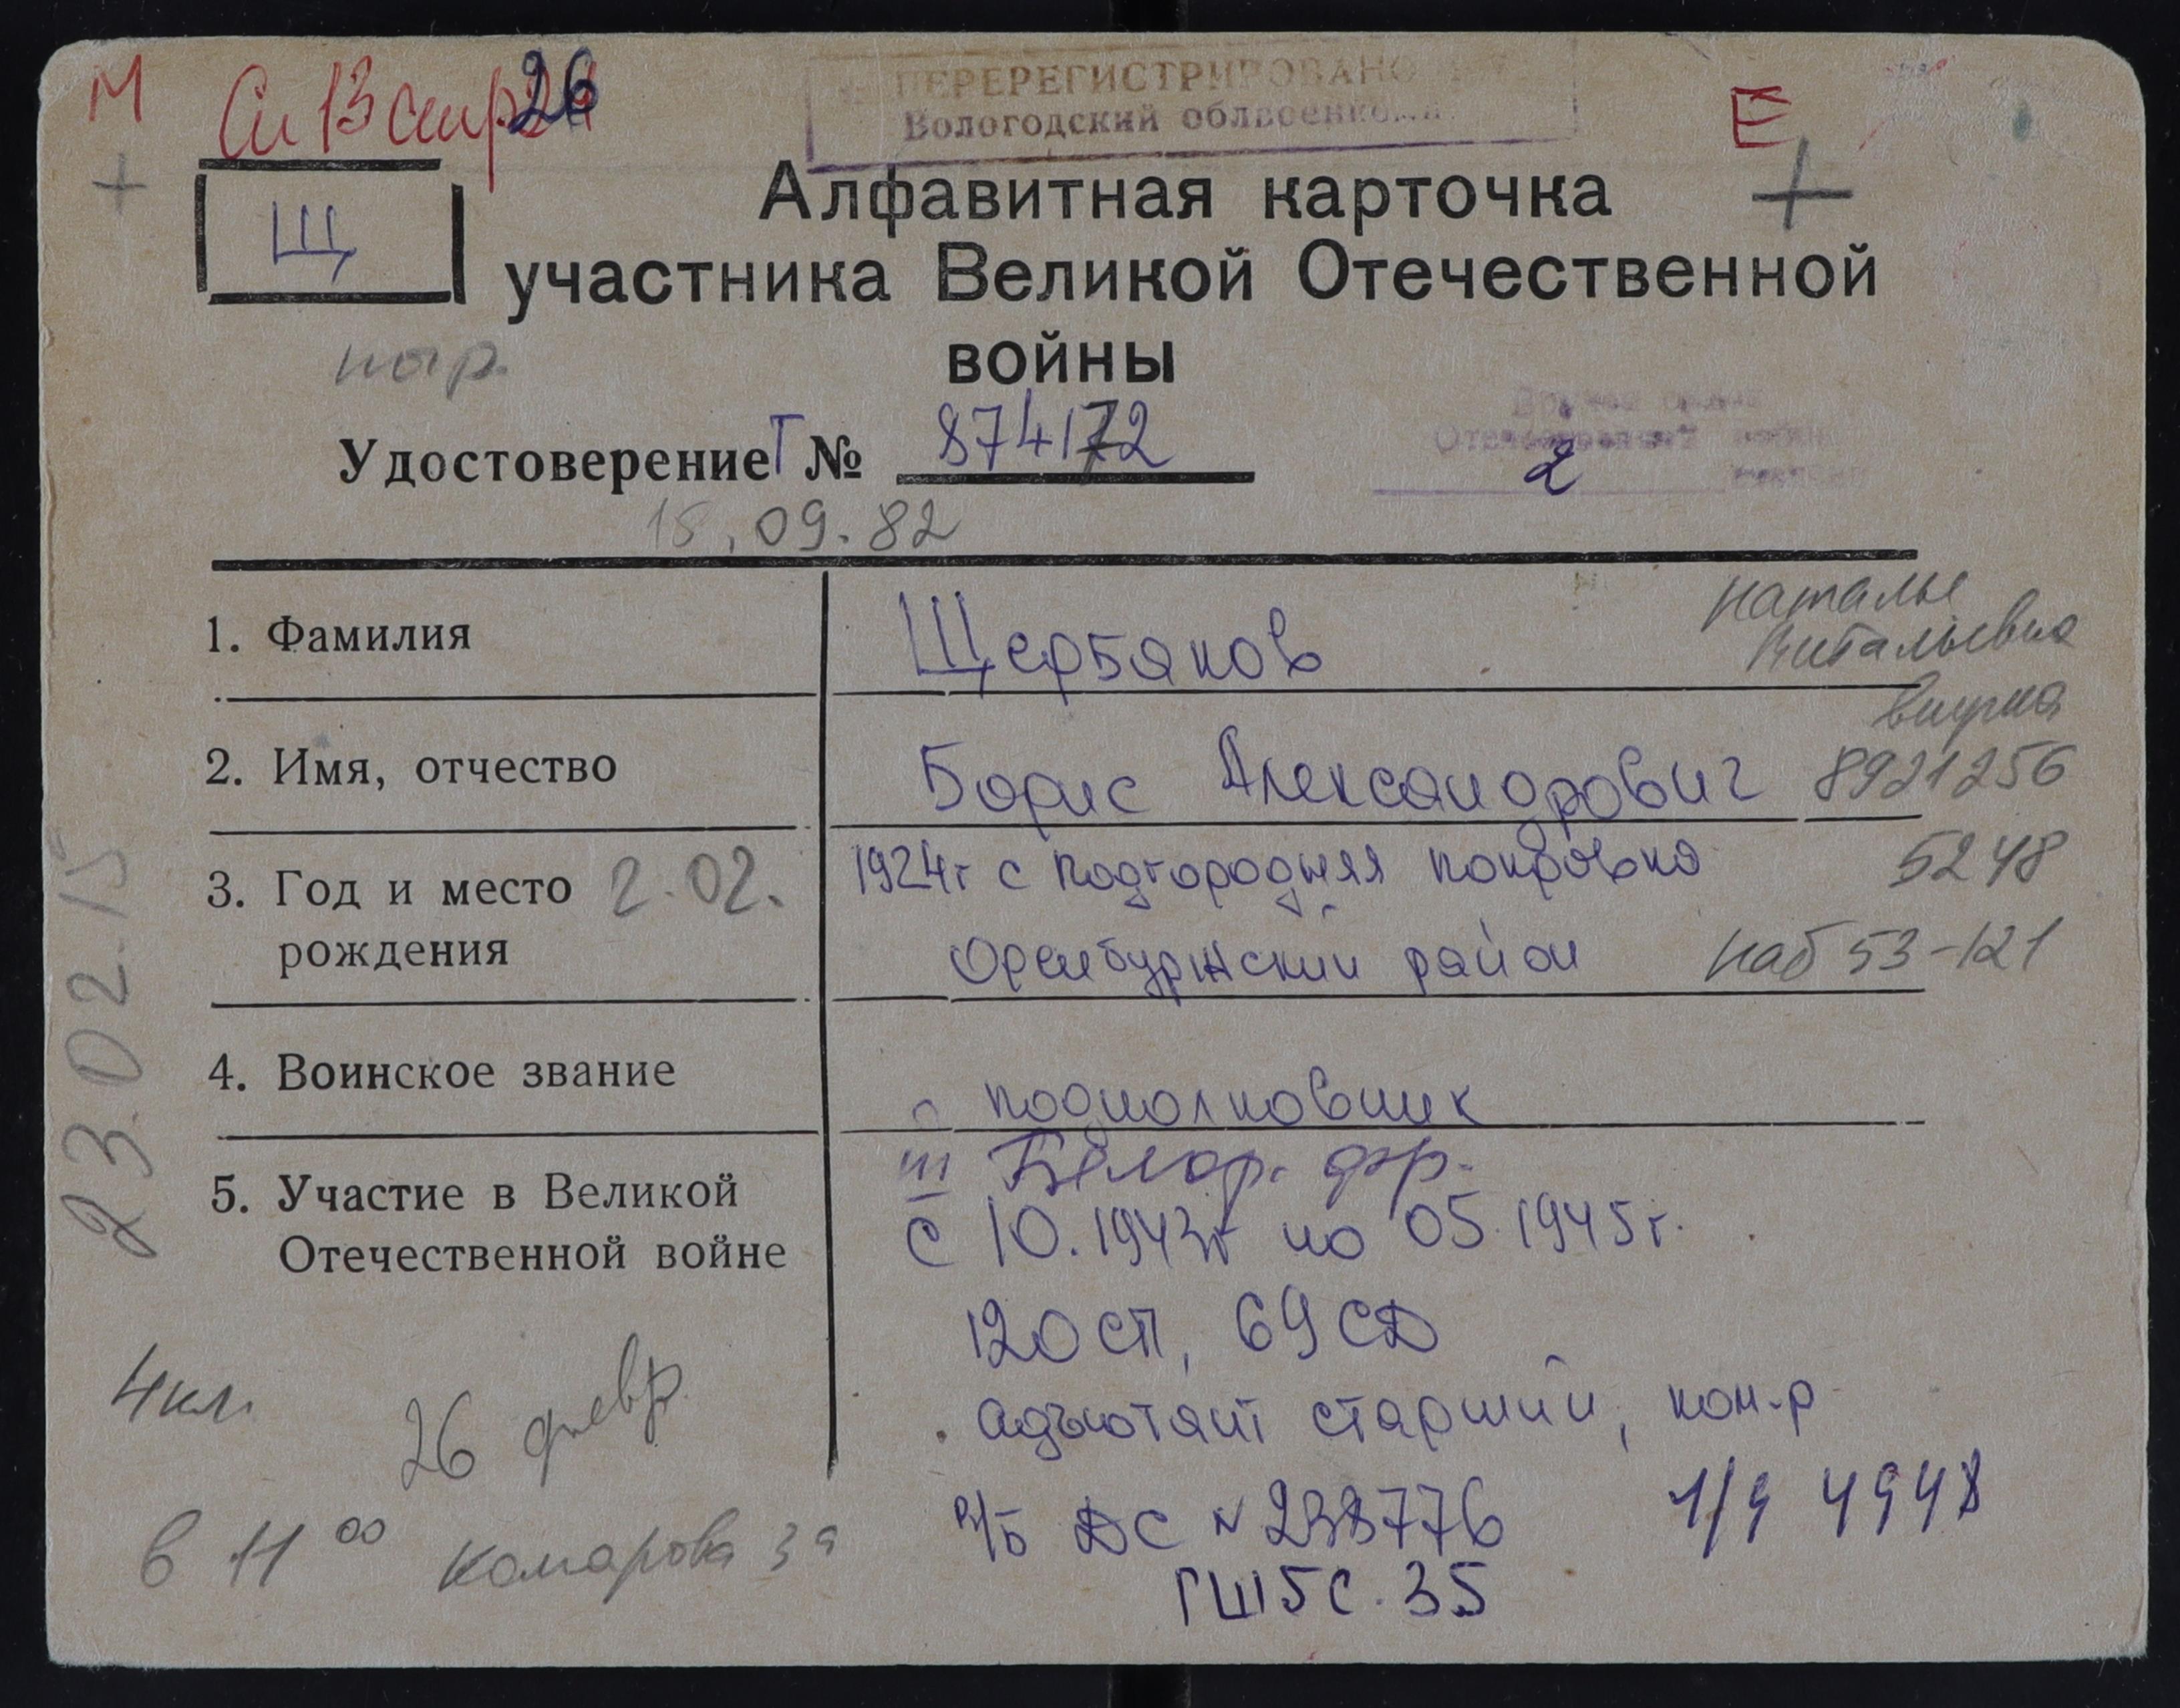 М
Сп 13 стр 26
ПЕРЕРЕГИСТРИРОВАНО
Вологодский облвоенком
Е
+
+
Щ
Алфавитная карточка
участника Великой Отечественной
войны
Удостоверение Т № 874172
Отечественной
2
15.09.82
1. Фамилия
Щербаков
Наталье
Витальевна
внучка
2. Имя, отчество
Борис Александрович
8921256
5248
3. Год и место рождения
2.02.
1924г с Подгородняя Покровка
Оренбуржский район
наб 53-121
4. Воинское звание
п подполковник
5. Участие в Великой
Отечественной войне
III Белор. фр.
с 10.1943г по 05.1945г.
120 СП, 69 СД
адъютант старший, ком-р
в/б ДС № 238776
1/д 4948
ГШ 5 С. 35
23 02.15
4 кл.
26 февр.
в 11 00 Комарова 3а